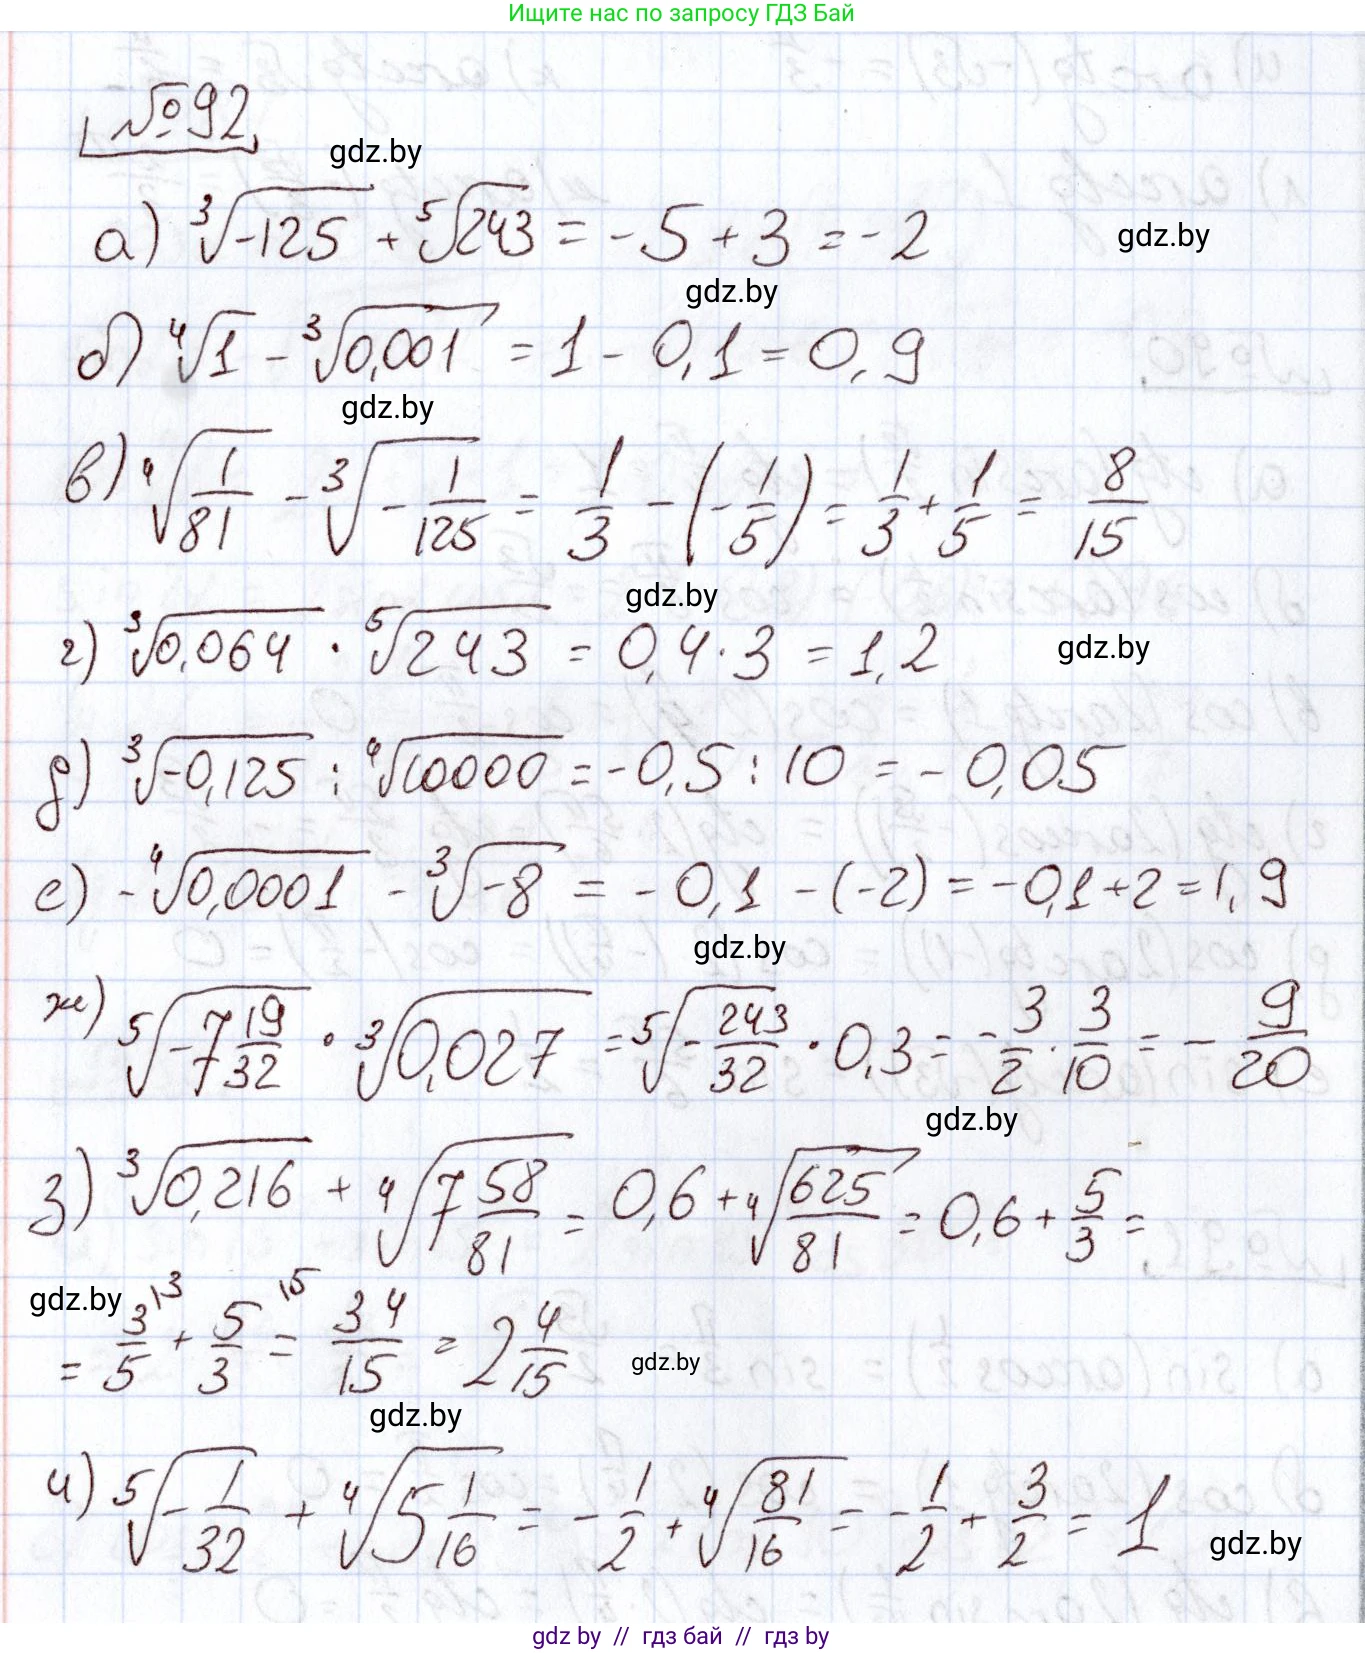 Ищите нас по запросу ГДЗ Бай
№92
gdz.by
а) ∛(-125) + ⁵√243 = -5 + 3 = -2
gdz.by
gdz.by
б) ⁴√1 - ∛0,001 = 1 - 0,1 = 0,9
gdz.by
в) ⁴√(1/81) - ∛(-1/125) = 1/3 - (-1/5) = 1/3 + 1/5 = 8/15
gdz.by
г) ∛0,064 · ⁵√243 = 0,4 · 3 = 1,2
gdz.by
д) ∛(-0,125) : ⁴√10000 = -0,5 : 10 = -0,05
е) -⁴√0,0001 - ∛(-8) = -0,1 - (-2) = -0,1 + 2 = 1,9
gdz.by
ж) ⁵√(-7 19/32) · ∛0,027 = ⁵√(-243/32) · 0,3 = -3/2 · 3/10 = -9/20
gdz.by
з) ∛0,216 + ⁴√(7 58/81) = 0,6 + ⁴√(625/81) = 0,6 + 5/3 =
gdz.by
= 3/5 ^{\3} + 5/3 ^{\5} = 34/15 = 2 4/15
gdz.by
gdz.by
и) ⁵√(-1/32) + ⁴√(5 1/16) = -1/2 + ⁴√(81/16) = -1/2 + 3/2 = 1
gdz.by
gdz by // гдз бай // гдз by